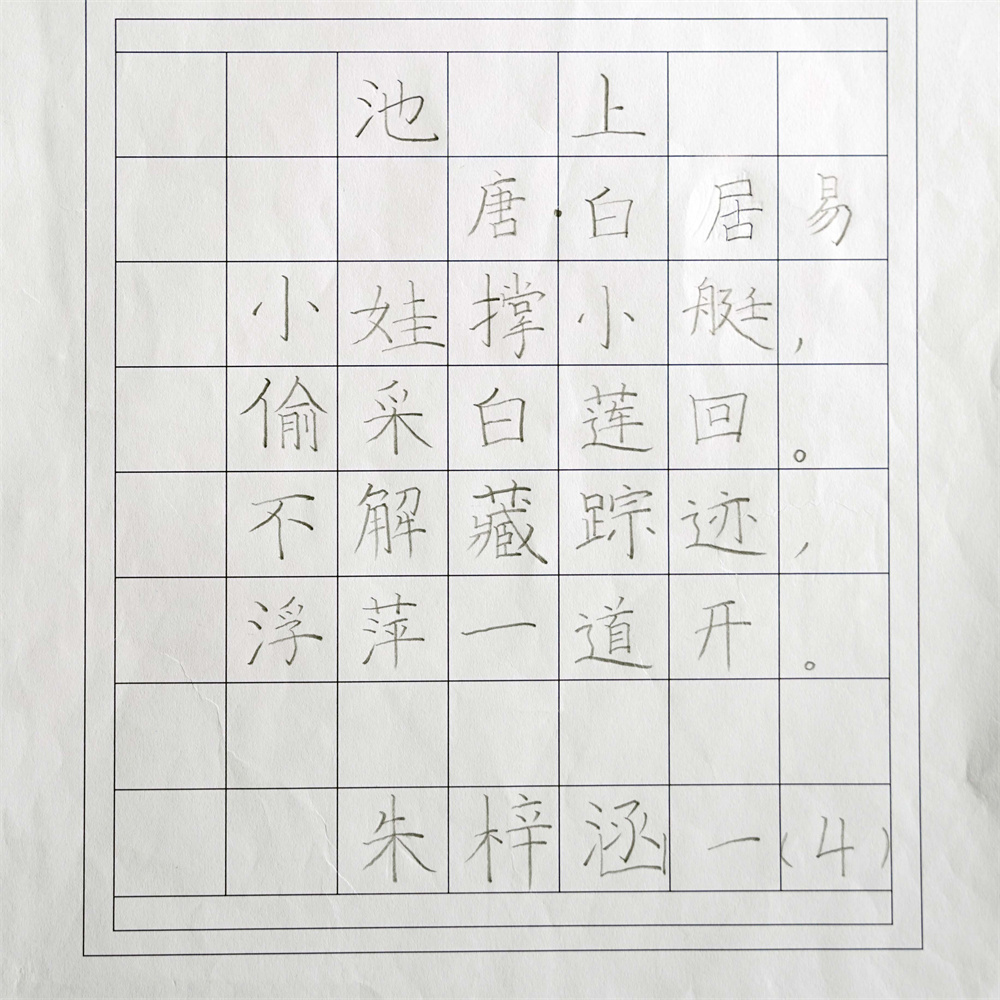 池上
唐·白居易
小娃撑小艇，
偷采白莲回。
不解藏踪迹，
浮萍一道开。
朱梓涵 一（4）